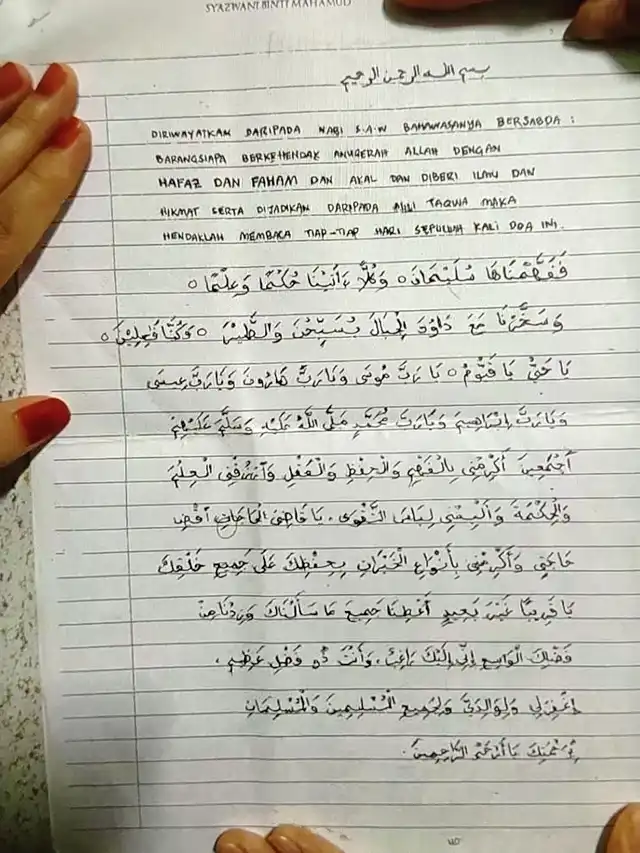 SYAZWANI BINTI MAHAMUD
بسم الله الرحمن الرحيم
DIRIWAYATKAN DARIPADA NABI S.A.W BAHAWASANYA BERSABDA :
BARANGSIAPA BERKEHENDAK ANUGERAH ALLAH DENGAN
HAFAZ DAN FAHAM DAN AKAL DAN DIBERI ILMU DAN
HIKMAT SERTA DIJADIKAN DARIPADA AHLI TAQWA MAKA
HENDAKLAH MEMBACA TIAP-TIAP HARI SEPULUH KALI DOA INI.
فَفَهَّمْنَاهَا سُلَيْمَانَ ○ وَكُلًّا ءَاتَيْنَا حُكْمًا وَعِلْمًا ○
وَسَخَّرْنَا مَعَ دَاوُدَ الْجِبَالَ يُسَبِّحْنَ وَالطَّيْرَ ○ وَكُنَّا فَاعِلِيْنَ ○
يَا حَيُّ يَا قَيُّوْمُ ○ يَا رَبَّ مُوسَى وَيَا رَبَّ هَارُونَ وَيَا رَبَّ عِيسَى
وَيَا رَبَّ إِبْرَاهِيمَ وَيَا رَبَّ مُحَمَّدٍ صَلَّى اللَّهُ عَلَيْهِ وَسَلَّمَ عَلَيْهِمْ
أَجْمَعِينَ أَكْرِمْنِي بِالْفَهْمِ وَالْحِفْظِ وَالْعَقْلِ وَارْزُقْنِي الْعِلْمَ
وَالْحِكْمَةَ وَأَلْبِسْنِي لِبَاسَ التَّقْوَى . يَا قَاضِيَ الْحَاجَاتِ أَقْضِ
حَاجَتِي وَأَكْرِمْنِي بِأَنْوَاعِ الْخَيْرَاتِ بِحِفْظِكَ عَلَى جَمِيعِ خَلْقِكَ
يَا قَرِيبًا غَيْرَ بَعِيدٍ أَعْطِنَا جَمِيعَ مَا سَأَلْنَاكَ وَزِدْنَا مِنْ
فَضْلِكَ الْوَاسِعِ إِنِّي إِلَيْكَ رَاغِبٌ . وَأَنْتَ ذُو فَضْلٍ عَظِيمٍ .
إِغْفِرْلِي وَلِوَالِدَيَّ وَلِجَمِيعِ الْمُسْلِمِينَ وَالْمُسْلِمَاتِ
بِرَحْمَتِكَ يَا أَرْحَمَ الرَّاحِمِينَ .